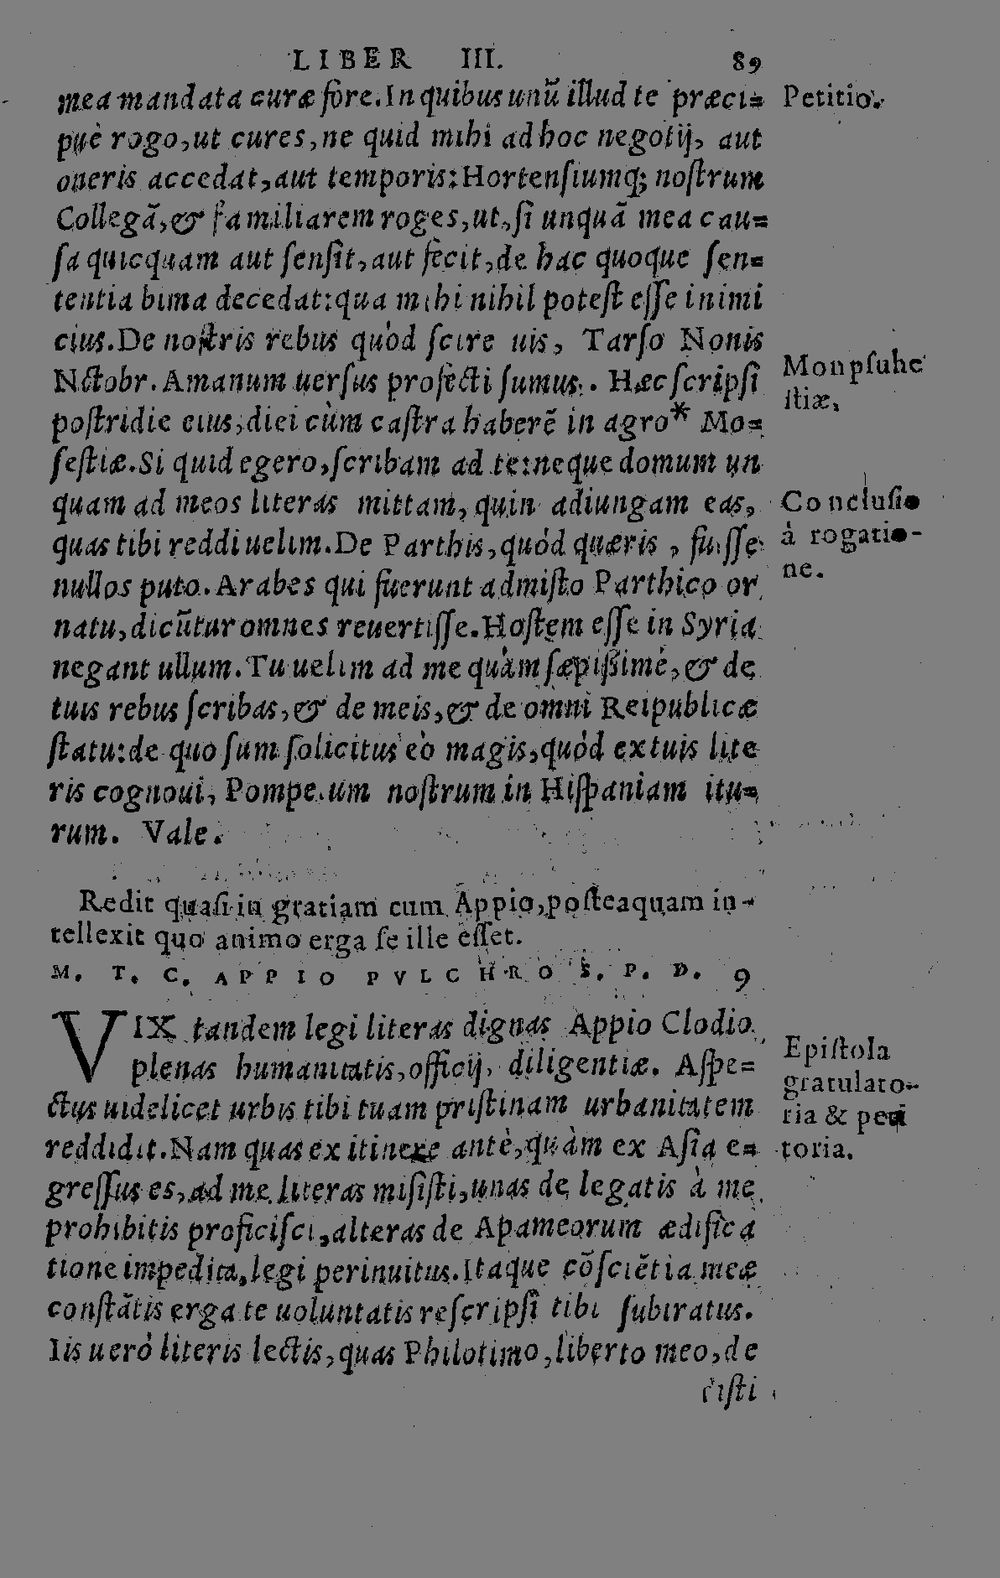 LIBER III. 89
mea mandata curæ fore. In quibus unū illud te præci=
puè rogo, ut cures, ne quid mihi ad hoc negotij, aut
oneris accedat, aut temporis: Hortensiumq; nostrum
Collegā, & familiarem roges, ut, si unquā mea cau=
sa quicquam aut sensit, aut fecit, de hac quoque sen=
tentia bima decedat: qua mihi nihil potest esse inimi
cius. De nostris rebus quòd scire uis, Tarso Nonis
Nctobr. Amanum uersus profecti sumus. Hæc scripsi
postridie eius, diei cùm castra haberē in agro* Mo=
festiæ. Si quid egero, scribam ad te: neque domum un
quam ad meos literas mittam, quin adiungam eas,
quas tibi reddi uelim. De Parthis, quód quæris, fuisse
nullos puto. Arabes qui fuerunt admisto Parthico or
natu, dicūtur omnes reuertisse. Hostem esse in Syria
negant ullum. Tu uelim ad me quàm sæpißimè, & de
tuis rebus scribas, & de meis, & de omni Reipublicæ
statu: de quo sum solicitus eò magis, quód ex tuis lite
ris cognoui, Pompeium nostrum in Hispaniam itu=
rum. Vale.
Petitio.
Monpsuhe
stiæ.
Conclusio
à rogatio-
ne.
Redit quasi in gratiam cum Appio, posteaquam in-
tellexit quo animo erga se ille esset.
M. T. C. APPIO PVLCHRO S. P. D. 9
VIX tandem legi literas dignas Appio Clodio
plenas humanitatis, officij, diligentiæ. Aspe=
ctus uidelicet urbis tibi tuam pristinam urbanitatem
reddidit. Nam quas ex itinere antè, quàm ex Asia e=
gressus es, ad me literas misisti, unas de legatis à me
prohibitis proficisci, alteras de Apameorum ædifica
tione impedita, legi perinuitus. Itaque cōsciētia meæ
constātis erga te uoluntatis rescripsi tibi subiratus.
Iis ueró literis lectis, quas Philotimo, liberto meo, de
disti
Epistola
gratulato-
ria & peti
toria.